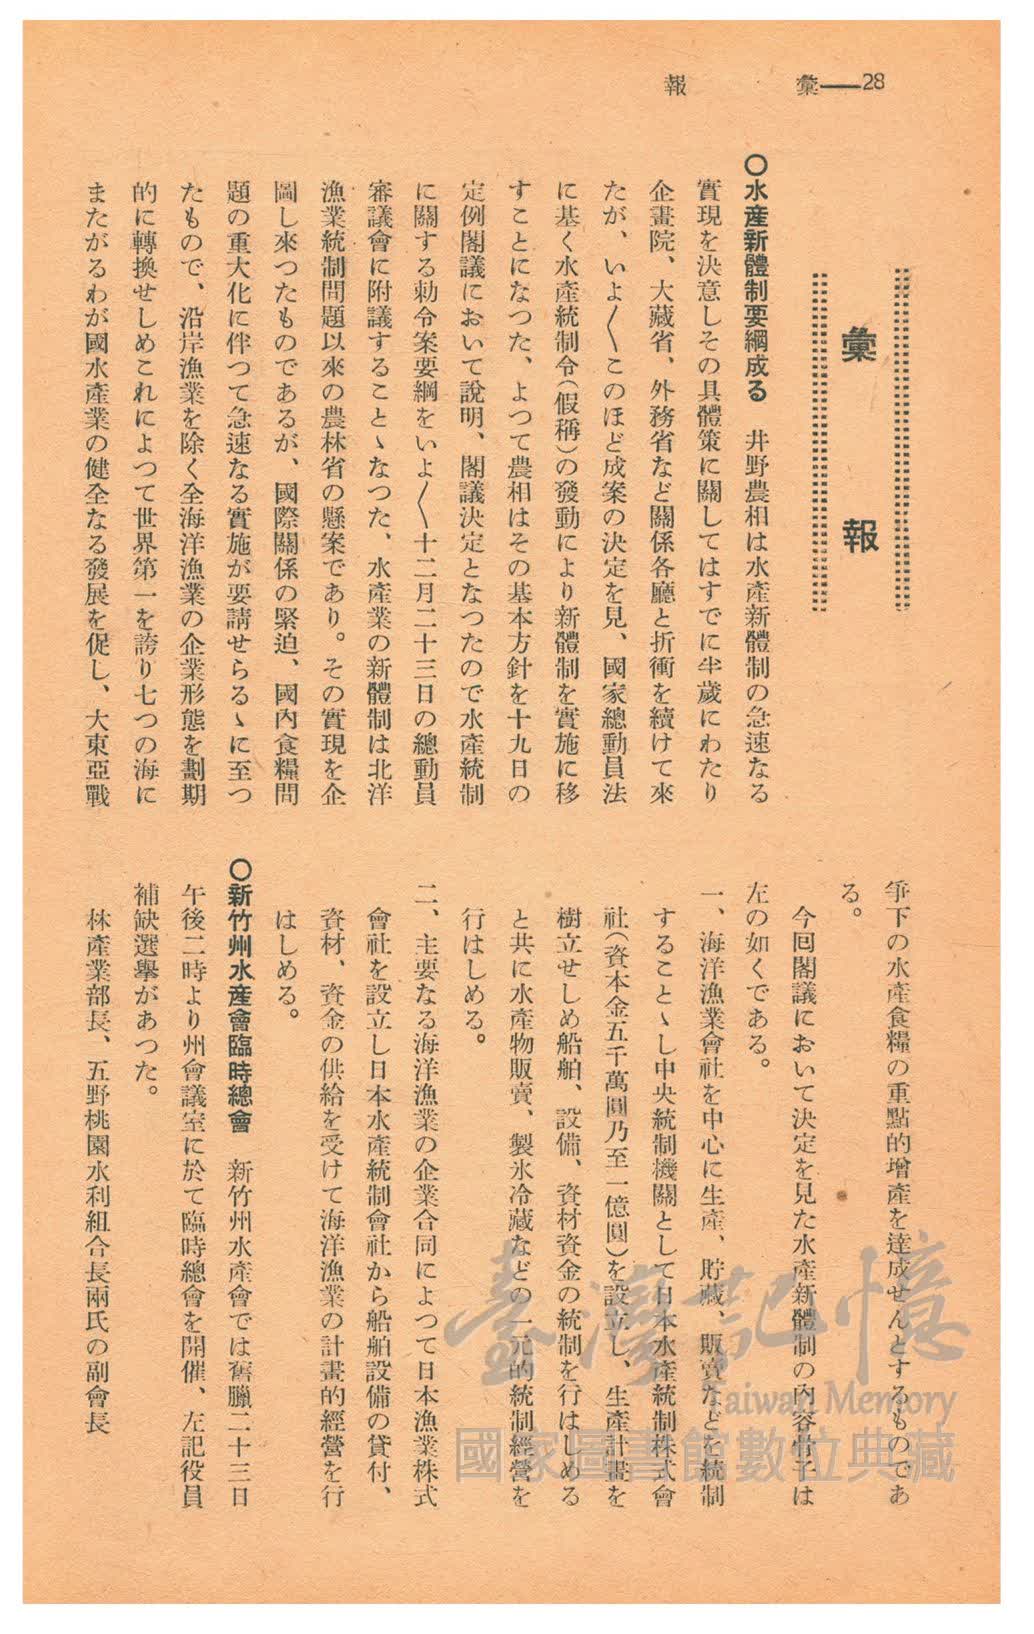 28——彙報
彙報
〇水產新體制要綱成る　井野農相は水產新體制の急速なる
實現を決意しその具體策に關してはすでに半歲にわたり
企畫院、大藏省、外務省など關係各廳と折衝を續けて來
たが、いよ〱このほど成案の決定を見、國家總動員法
に基く水產統制令(假稱)の發動により新體制を實施に移
すことになつた、よつて農相はその基本方針を十九日の
定例閣議において說明、閣議決定となつたので水產統制
に關する勅令案要綱をいよ〱十二月二十三日の總動員
審議會に附議することゝなつた、水產業の新體制は北洋
漁業統制問題以來の農林省の懸案であり。その實現を企
圖し來つたものであるが、國際關係の緊迫、國內食糧問
題の重大化に伴つて急速なる實施が要請せらるゝに至つ
たもので、沿岸漁業を除く全海洋漁業の企業形態を劃期
的に轉換せしめこれによつて世界第一を誇り七つの海に
またがるわが國水產業の健全なる發展を促し、大東亞戰
爭下の水產食糧の重點的增產を達成せんとするものであ
る。
今回閣議において決定を見た水產新體制の內容骨子は
左の如くである。
一、海洋漁業會社を中心に生產、貯藏、販賣などを統制
することゝし中央統制機關として日本水產統制株式會
社(資本金五千萬圓乃至一億圓)を設立し、生產計畫を
樹立せしめ船舶、設備、資材資金の統制を行はしめる
と共に水產物販賣、製氷冷藏などの一元的統制經營を
行はしめる。
二、主要なる海洋漁業の企業合同によつて日本漁業株式
會社を設立し日本水產統制會社から船舶設備の貸付、
資材、資金の供給を受けて海洋漁業の計畫的經營を行
はしめる。
〇新竹州水產會臨時總會　新竹州水產會では舊臘二十三日
午後二時より州會議室に於て臨時總會を開催、左記役員
補缺選擧があつた。
林產業部長、五野桃園水利組合長兩氏の副會長
臺灣記憶
Taiwan Memory
國家圖書館數位典藏